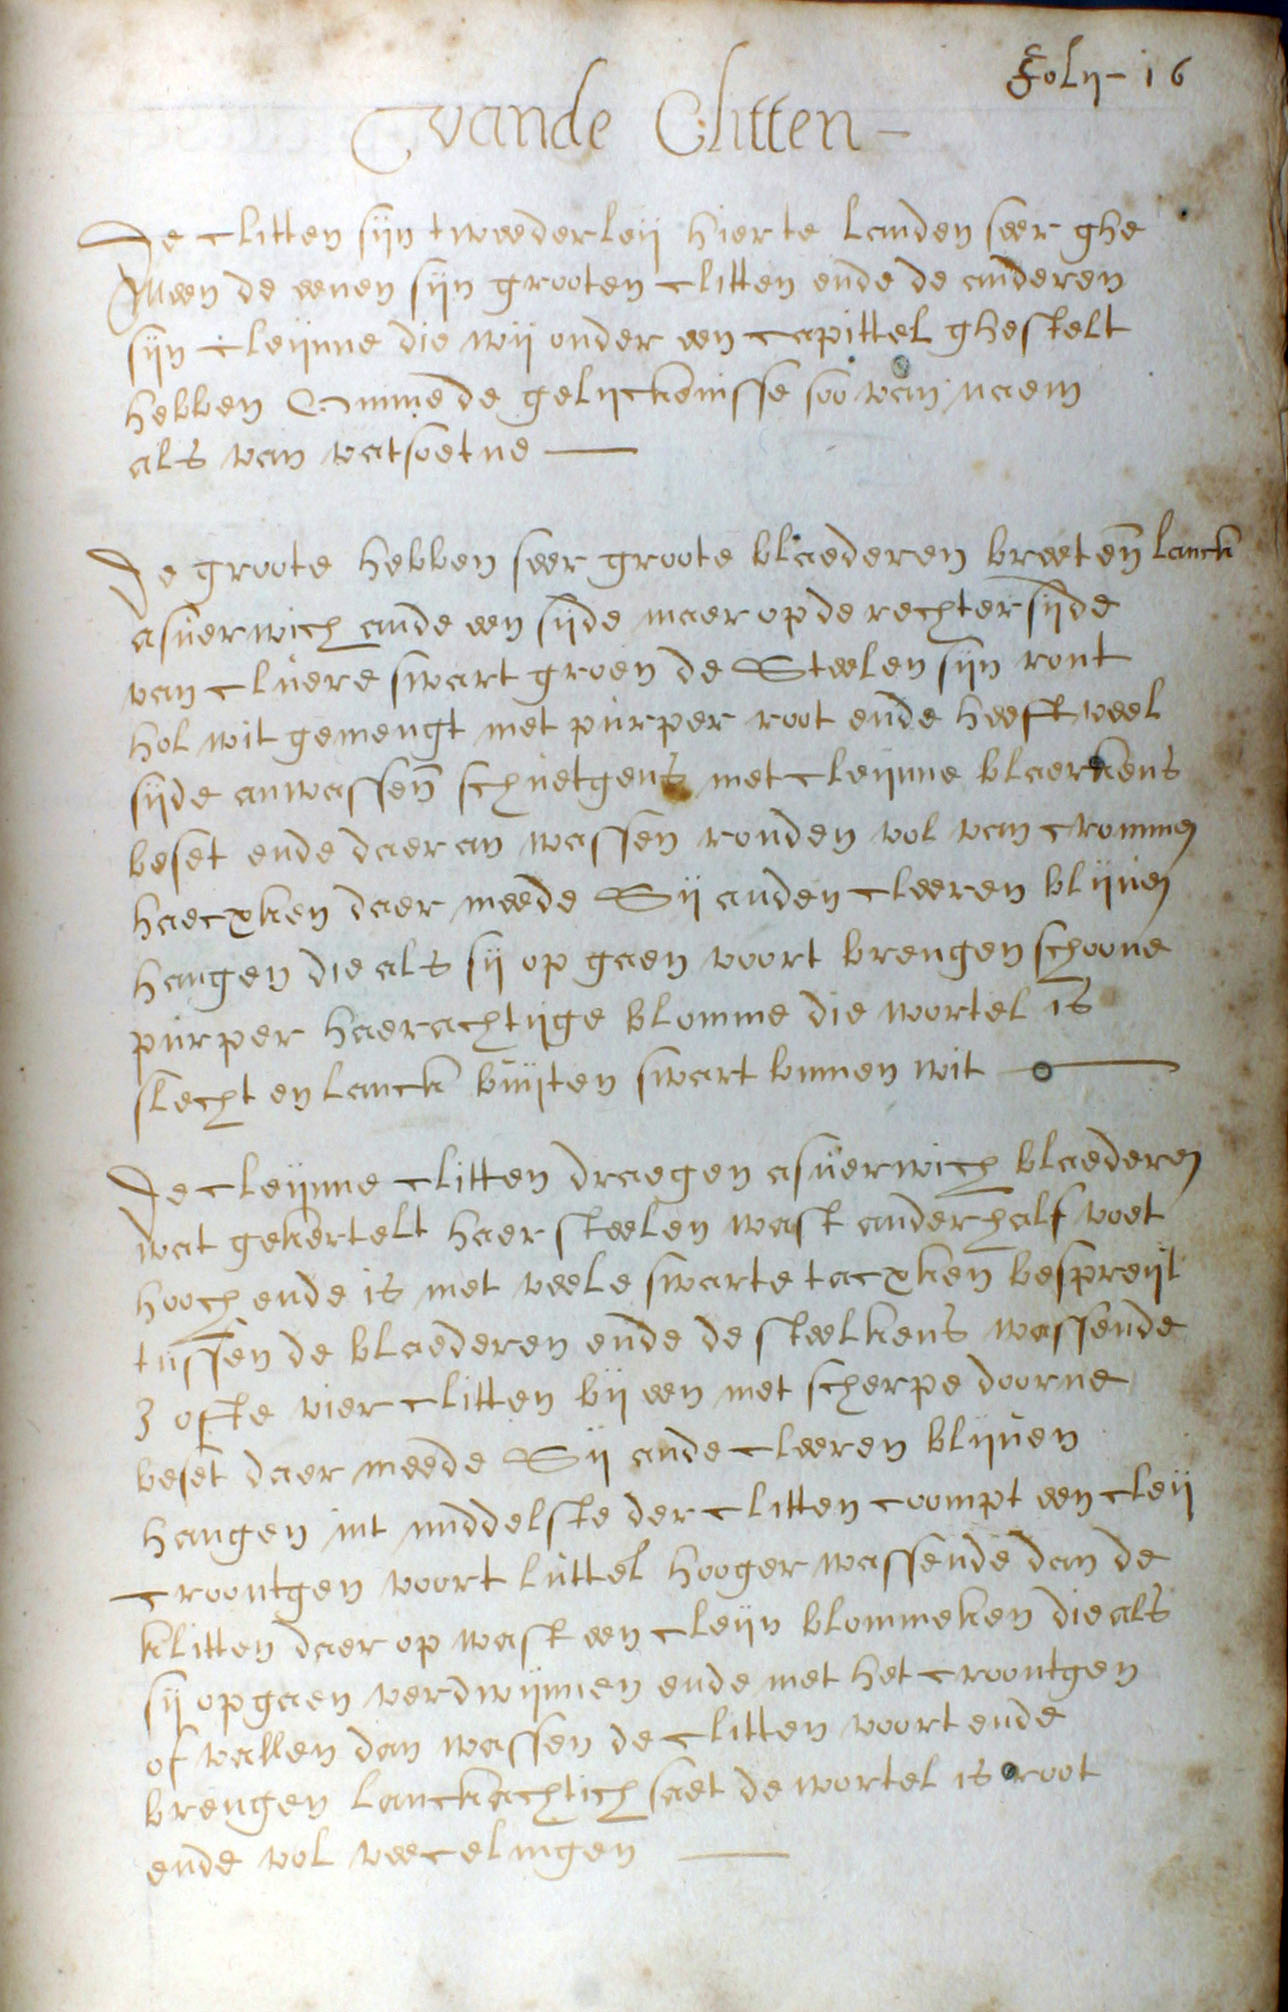 Foly - 16
vande Clitten -
De clitten sijn tweederleij hier te landen seer ghe
Meen de eenen sijn grooten clitten ende de anderen
sijn cleijnne die wij onder een capittel ghestelt
hebben Omme de gelijckenisse soo van naem
als van vatsoetne —
De groote hebben seer groote blaederen breet en̄ lanck
asüerwich ande een sijde maer op de rechter sijde
van cluere swart groen de Steelen sijn ront
hol wit gemengt met purper root ende heeft veel
sijde anwassen̄ schuetgens met cleijnne blaerkens
beset ende daer an wassen ronden vol van crommen
haecxken daer meede Sij anden cleeren blijuen
hangen die als sij op gaen voort brengen schoone
purper haerachtijge blomme die wortel is
slecht en lanck buijten swart binnen wit —
De cleijnne clitten draegen asüerwich blaederen
wat gekertelt haer steelen wast anderhalf voet
hooch ende is met veele swarte tacxken̄ bespreijt
tussen de blaederen ende de steelkens wassende
3 ofte vier clitten bij een met scherpe doorne
beset daer meede Sij ande cleeren blijuen
hangen int middelste der clitten coompt een cleij
croontgen voort luttel hooger wassende dan de
klitten daer op wast een cleijn blommeken die als
sij opgaen verdwijnnen ende met het croontgen
of vallen dan wassen de clitten voort ende
brengen lanckachtich saet de wortel is root
ende vol veecelingen —